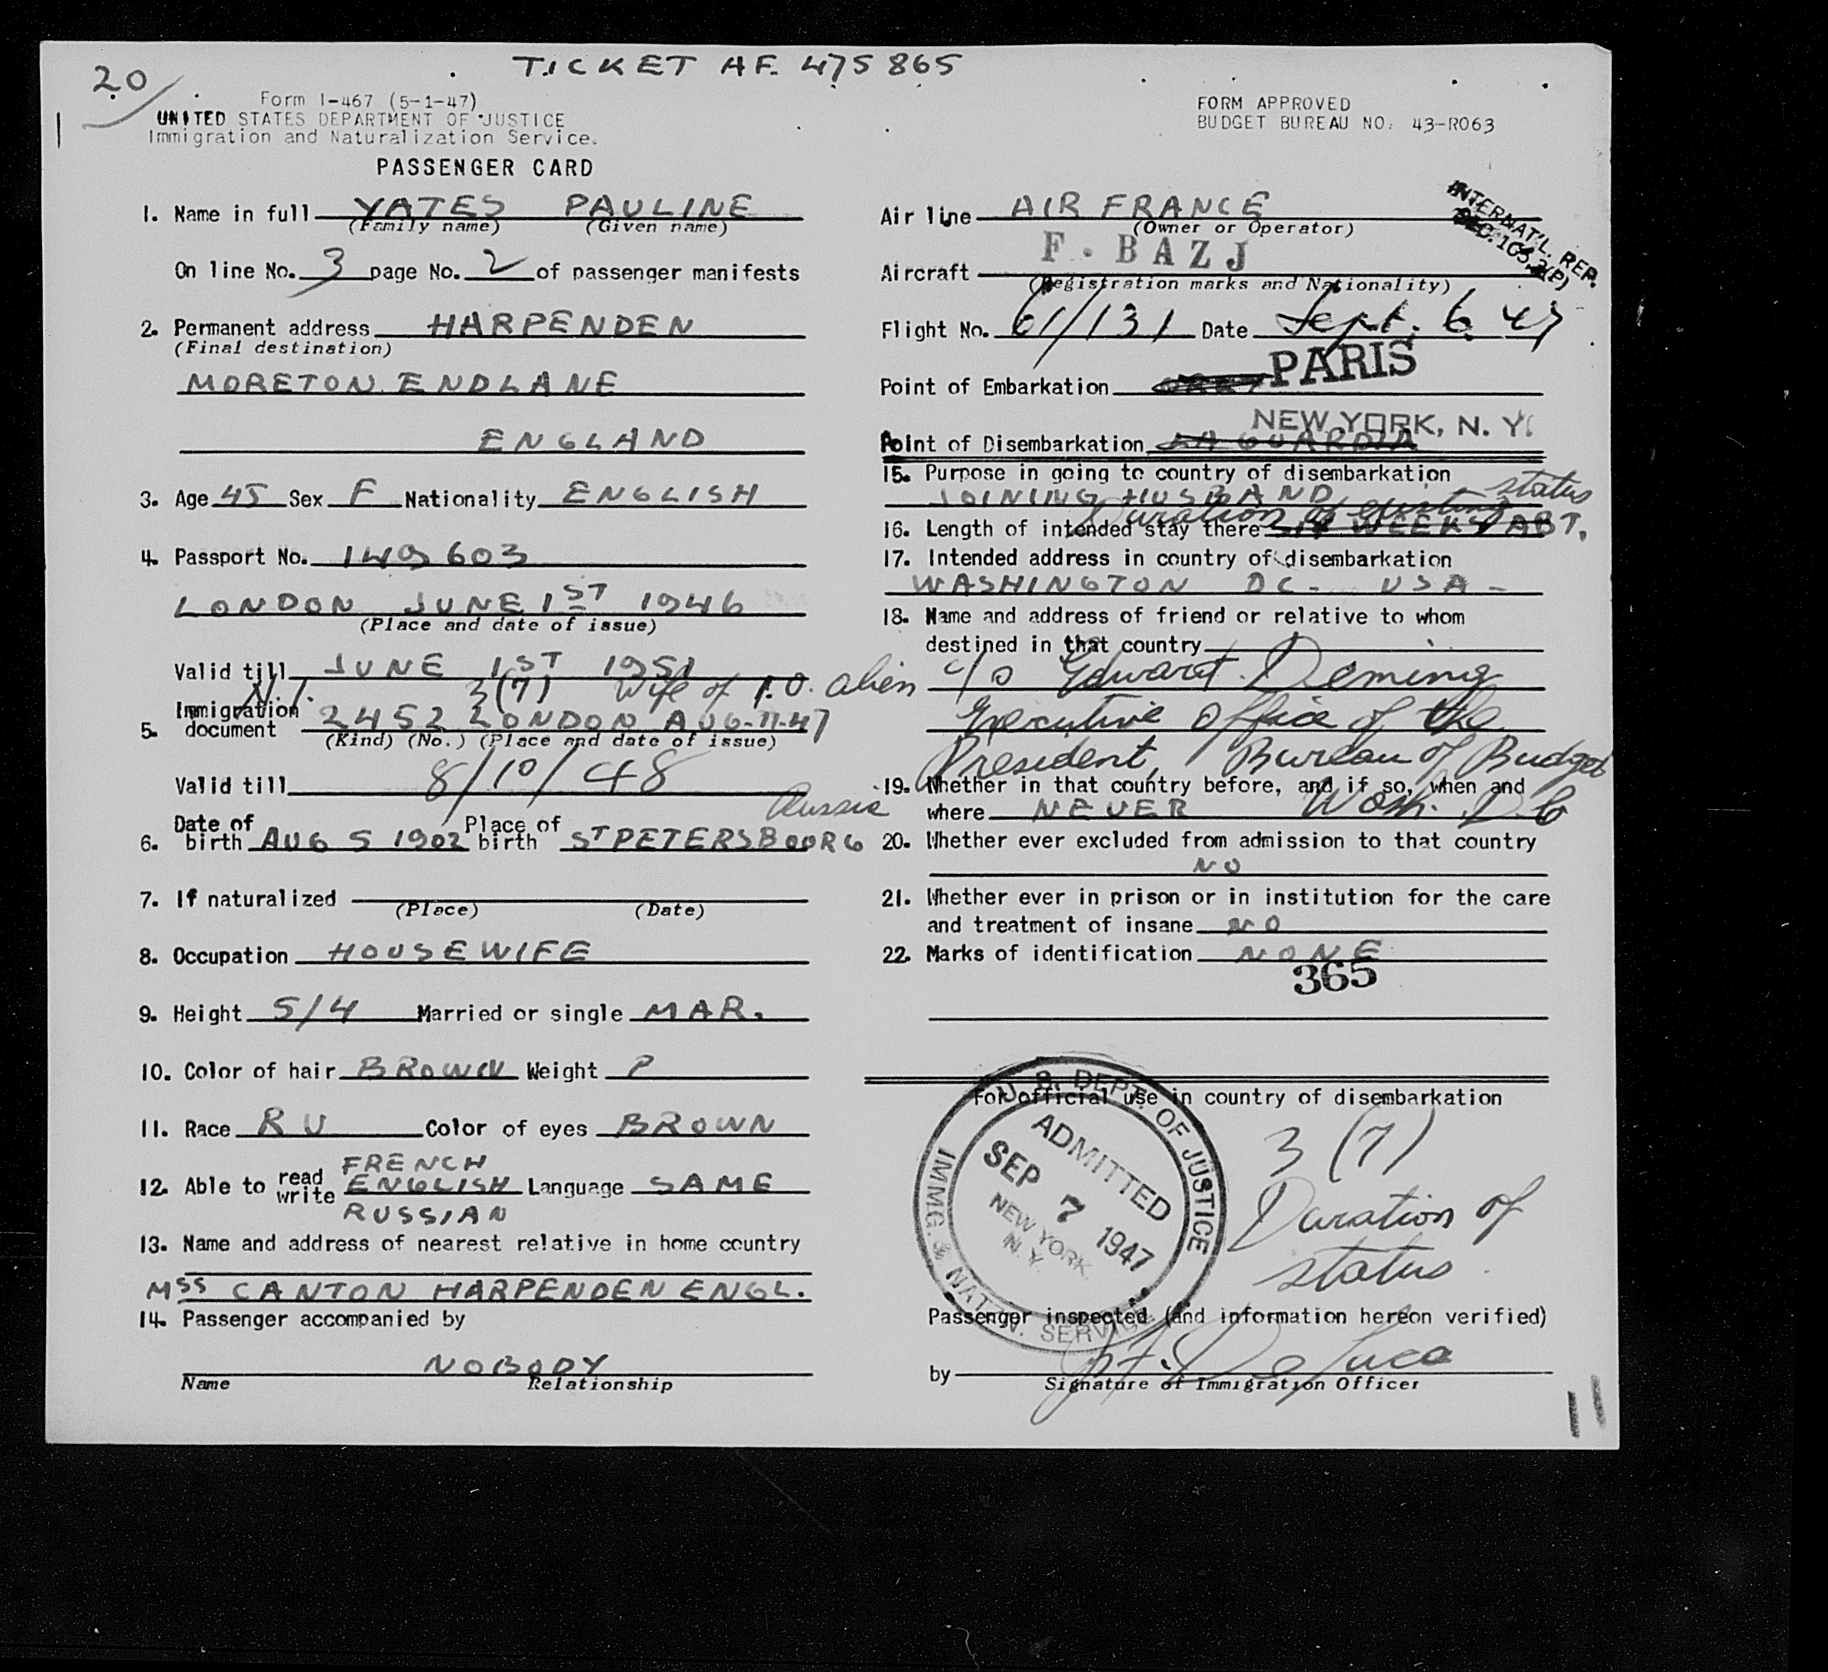 20
TICKET AF. 475865
Form I-467 (5-1-47)
UNITED STATES DEPARTMENT OF JUSTICE
Immigration and Naturalization Service.
PASSENGER CARD
1. Name in full YATES PAULINE
(Family name) (Given name)
On line No. 3 page No. 2 of passenger manifests
2. Permanent address HARPENDEN
(Final destination)
MORETON ENDLANE
ENGLAND
3. Age 45 Sex F Nationality ENGLISH
4. Passport No. 149603
LONDON JUNE 1ST 1946
(Place and date of issue)
Valid till JUNE 1ST 1951
N.I. 3(7) Wife of I.O. alien
5. Immigration document 2452 LONDON AUG-11-47
(Kind) (No.) (Place and date of issue)
Valid till 8/10/48
Russia
6. Date of birth AUG 5 1902 Place of birth ST PETERSBOORG
7. If naturalized
(Place) (Date)
8. Occupation HOUSEWIFE
9. Height 5/4 Married or single MAR.
10. Color of hair BROWN Weight P
11. Race RU Color of eyes BROWN
FRENCH
12. Able to read write ENGLISH Language SAME
RUSSIAN
13. Name and address of nearest relative in home country
MSS CANTON HARPENDEN ENGL.
14. Passenger accompanied by
NOBODY
Name Relationship
FORM APPROVED
BUDGET BUREAU NO. 43-R063
INTERNAT'L. REP.
SEC. 103.3(P)
Air line AIR FRANCE
(Owner or Operator)
Aircraft F. BAZJ
(Registration marks and Nationality)
Flight No. 61/131 Date Sept. 6. 47
Point of Embarkation PARIS
NEW YORK, N. Y.
Point of Disembarkation LA GUARDIA
15. Purpose in going to country of disembarkation
JOINING HUSBAND
Duration of existing status
16. Length of intended stay there WEEKS ABT.
17. Intended address in country of disembarkation
WASHINGTON DC- USA-
18. Name and address of friend or relative to whom
destined in that country
c/o Edward Deming
Executive office of the
President, Bureau of Budget
19. Whether in that country before, and if so, when and
where NEVER Wash. D C
20. Whether ever excluded from admission to that country
NO
21. Whether ever in prison or in institution for the care
and treatment of insane NO
22. Marks of identification NONE
365
For official use in country of disembarkation
U. S. DEPT. OF JUSTICE
ADMITTED
SEP 7 1947
NEW YORK
N. Y.
IMMG. & NAT'N. SERVICE
3 (7)
Duration of
status
Passenger inspected (and information hereon verified)
by
Signature of Immigration Officer
11